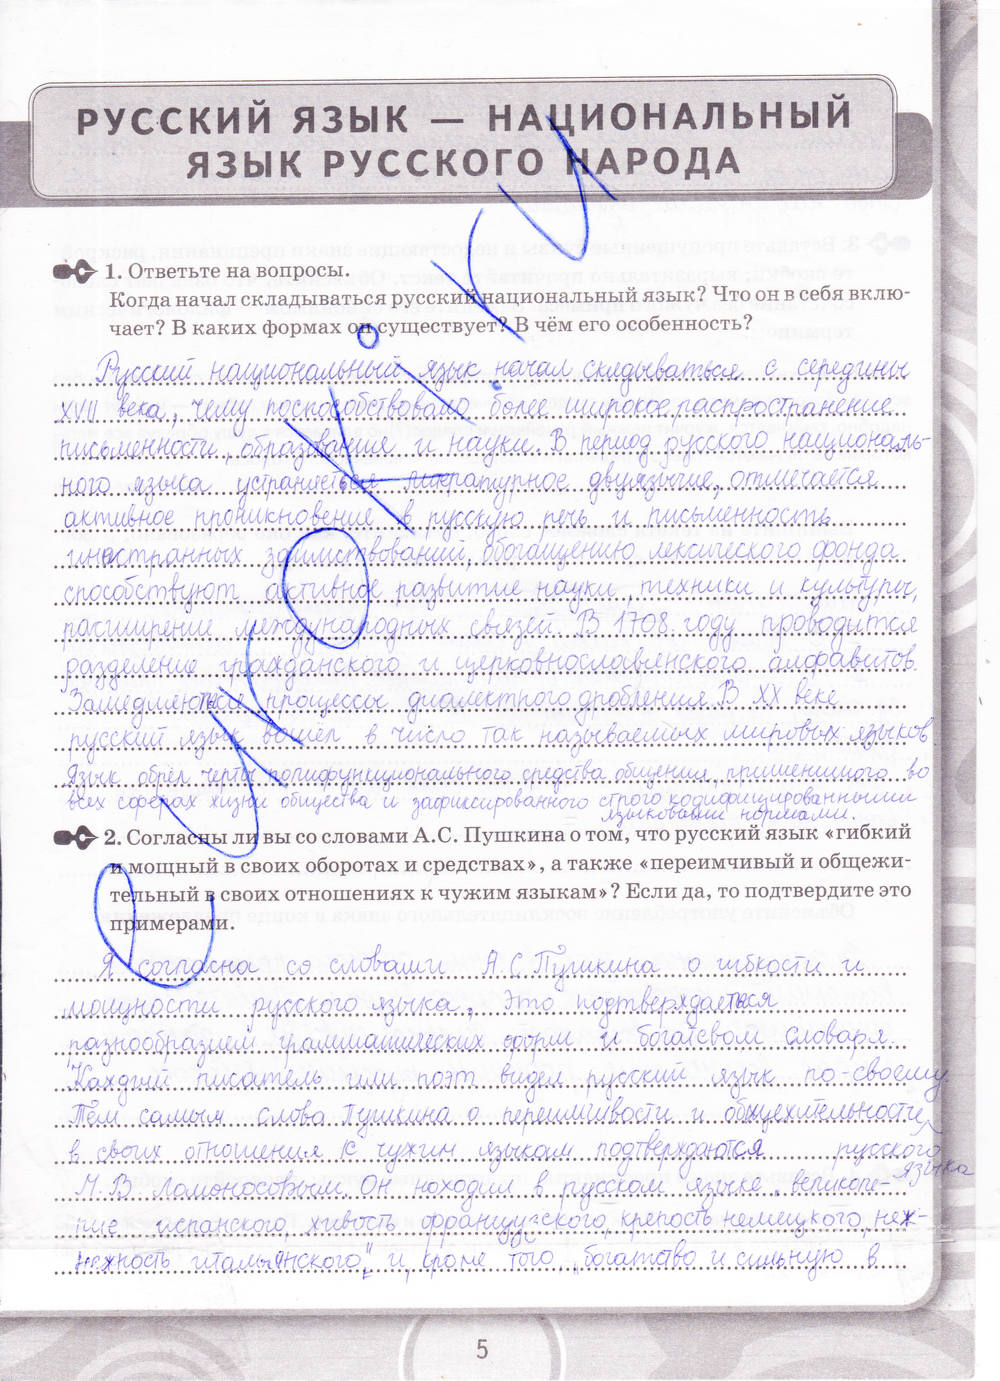 РУССКИЙ ЯЗЫК — НАЦИОНАЛЬНЫЙ
ЯЗЫК РУССКОГО НАРОДА
1. Ответьте на вопросы.
Когда начал складываться русский национальный язык? Что он в себя вклю-
чает? В каких формах он существует? В чём его особенность?
Русский национальный язык начал складываться с середины
XVII века, чему поспособствовало более широкое распространение
письменности, образования и науки. В период русского националь-
ного языка устраняется литературное двуязычие, отмечается
активное проникновение в русскую речь и письменность
иностранных заимствований, обогащению лексического фонда
способствуют активное развитие науки, техники и культуры,
расширение международных связей. В 1708 году проводится
разделение гражданского и церковнославянского алфавитов.
Замедляются процессы диалектного дробления. В XX веке
русский язык вошел в число так называемых мировых языков
Язык обрёл черты полифункционального средства общения, применимого во
всех сферах жизни общества и зафиксированного строго кодифицированными
языковыми нормами.
2. Согласны ли вы со словами А.С. Пушкина о том, что русский язык «гибкий
и мощный в своих оборотах и средствах», а также «переимчивый и общежи-
тельный в своих отношениях к чужим языкам»? Если да, то подтвердите это
примерами.
Я согласна со словами А.С. Пушкина о гибкости и
мощности русского языка, Это подтверждается
разнообразием грамматических форм и богатсвом словаря.
Каждый писатель или поэт видел русский язык по-своему.
Тем самым слова Пушкина о переимчивости и общежительности
в своих отношения к чужим языкам подтверждаются русского
языка
М.В Ломоносовым. Он находил в русском языке „великоле-
пие испанского, живость французского, крепость немецкого, неж-
нежность итальянского“, и, кроме того „богатство и сильную в
5
e uroki.ru